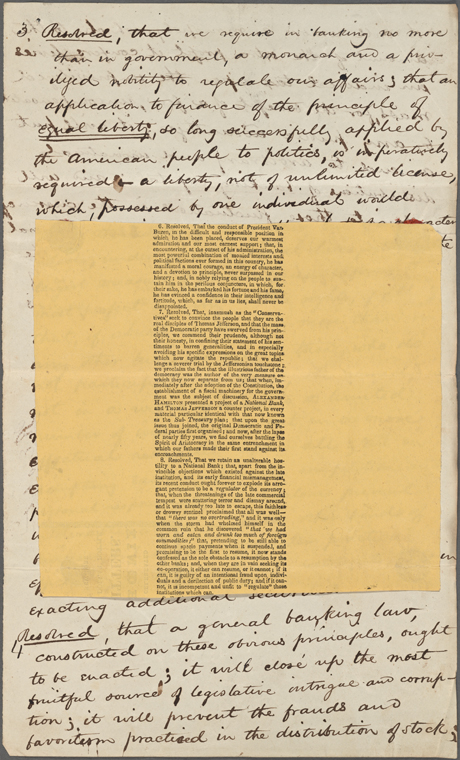 3 Resolved, that we require in banking no more
than in government, a monarch and a pri-
viliged nobility to regulate our affairs; that an
application to finance of the principle of
equal liberty, so long successfully applied by
the American people to politics, is imperatively
required – a liberty, not of unlimited license,
which, possessed by one individual would
6. Resolved, That the conduct of President Van
Buren, in the difficult and responsible position in
which he has been placed, deserves our warmest
admiration and our most earnest support; that, in
encountering, at the outset of his administration, the
most powerful combination of moneied interests and
political factions ever formed in this country, he has
manifested a moral courage, an energy of character,
and a devotion to principle, never surpassed in our
history; and, in nobly relying on the people to sus-
tain him in the perilous conjuncture, in which, for
their sake, he has embarked his fortune and his fame,
he has evinced a confidence in their intelligence and
fortitude, which, as far as in us lies, shall never be
disappointed.
7. Resolved, That, inasmuch as the "Conserva-
tives" seek to convince the people that they are the
real disciples of Thomas Jefferson, and that the mass
of the Democratic party have swerved from his prin-
ciples, we commend their prudence, although not
their honesty, in confining their statement of his sen-
timents to barren generalities, and in especially
avoiding his specific expressions on the great topics
which now agitate the republic; that we chal-
lenge a severer trial by the Jeffersonian touchstone;
we proclaim the fact that the illustrious father of the
democracy was the author of the very measure on
which they now separate from us; that when, im-
mediately after the adoption of the Constitution, the
establishment of a fiscal machinery for the govern-
ment was the subject of discussion, ALEXANDER
HAMILTON presented a project of a National Bank,
and THOMAS JEFFERSON a counter project, in every
material particular identical with that now known
as the Sub-Treasury plan; that upon the great
issue thus joined, the original Democratic and Fe-
deral parties first organised; and now, after the lapse
of nearly fifty years, we find ourselves battling the
Spirit of Aristocracy in the same entrenchment in
which our fathers made their first stand against its
encroachments.
8. Resolved, That we retain an unalterable hos-
tility to a National Bank; that, apart from the in-
vincible objections which existed against the late
institution, and its early financial mismanagement,
its recent conduct ought forever to explode its arro-
gant pretension to be a regulator of the currency;
that, when the threatenings of the late commercial
tempest were scattering terror and dismay around,
and it was already too late to escape, this faithless
or drowsy sentinel proclaimed that all was well—
that "there was no overtrading," and it was only
when the storm had whelmed himself in the
common ruin that he discovered "that we had
worn and eaten and drunk too much of foreign
commodities;" that, pretending to be still able to
continue specie payments when it suspended, and
promising to be the first to resume, it now stands
confessed as the sole obstacle to a resumption by the
other banks; and, when they are in vain seeking its
co-operation, it either can resume, or it cannot; if it
can, it is guilty of an intentional fraud upon indivi-
duals and a dereliction of public duty; and if it can-
not, it is incompetent and unfit to "regulate" those
institutions which can.
exacting additional
4 Resolved, that a general banking law,
constructed on these obvious principles, ought
to be enacted; it will close up the most
fruitful source of legislative intrigue and corrup-
tion; it will prevent the frauds and
favoritism practiced in the distribution of stock;